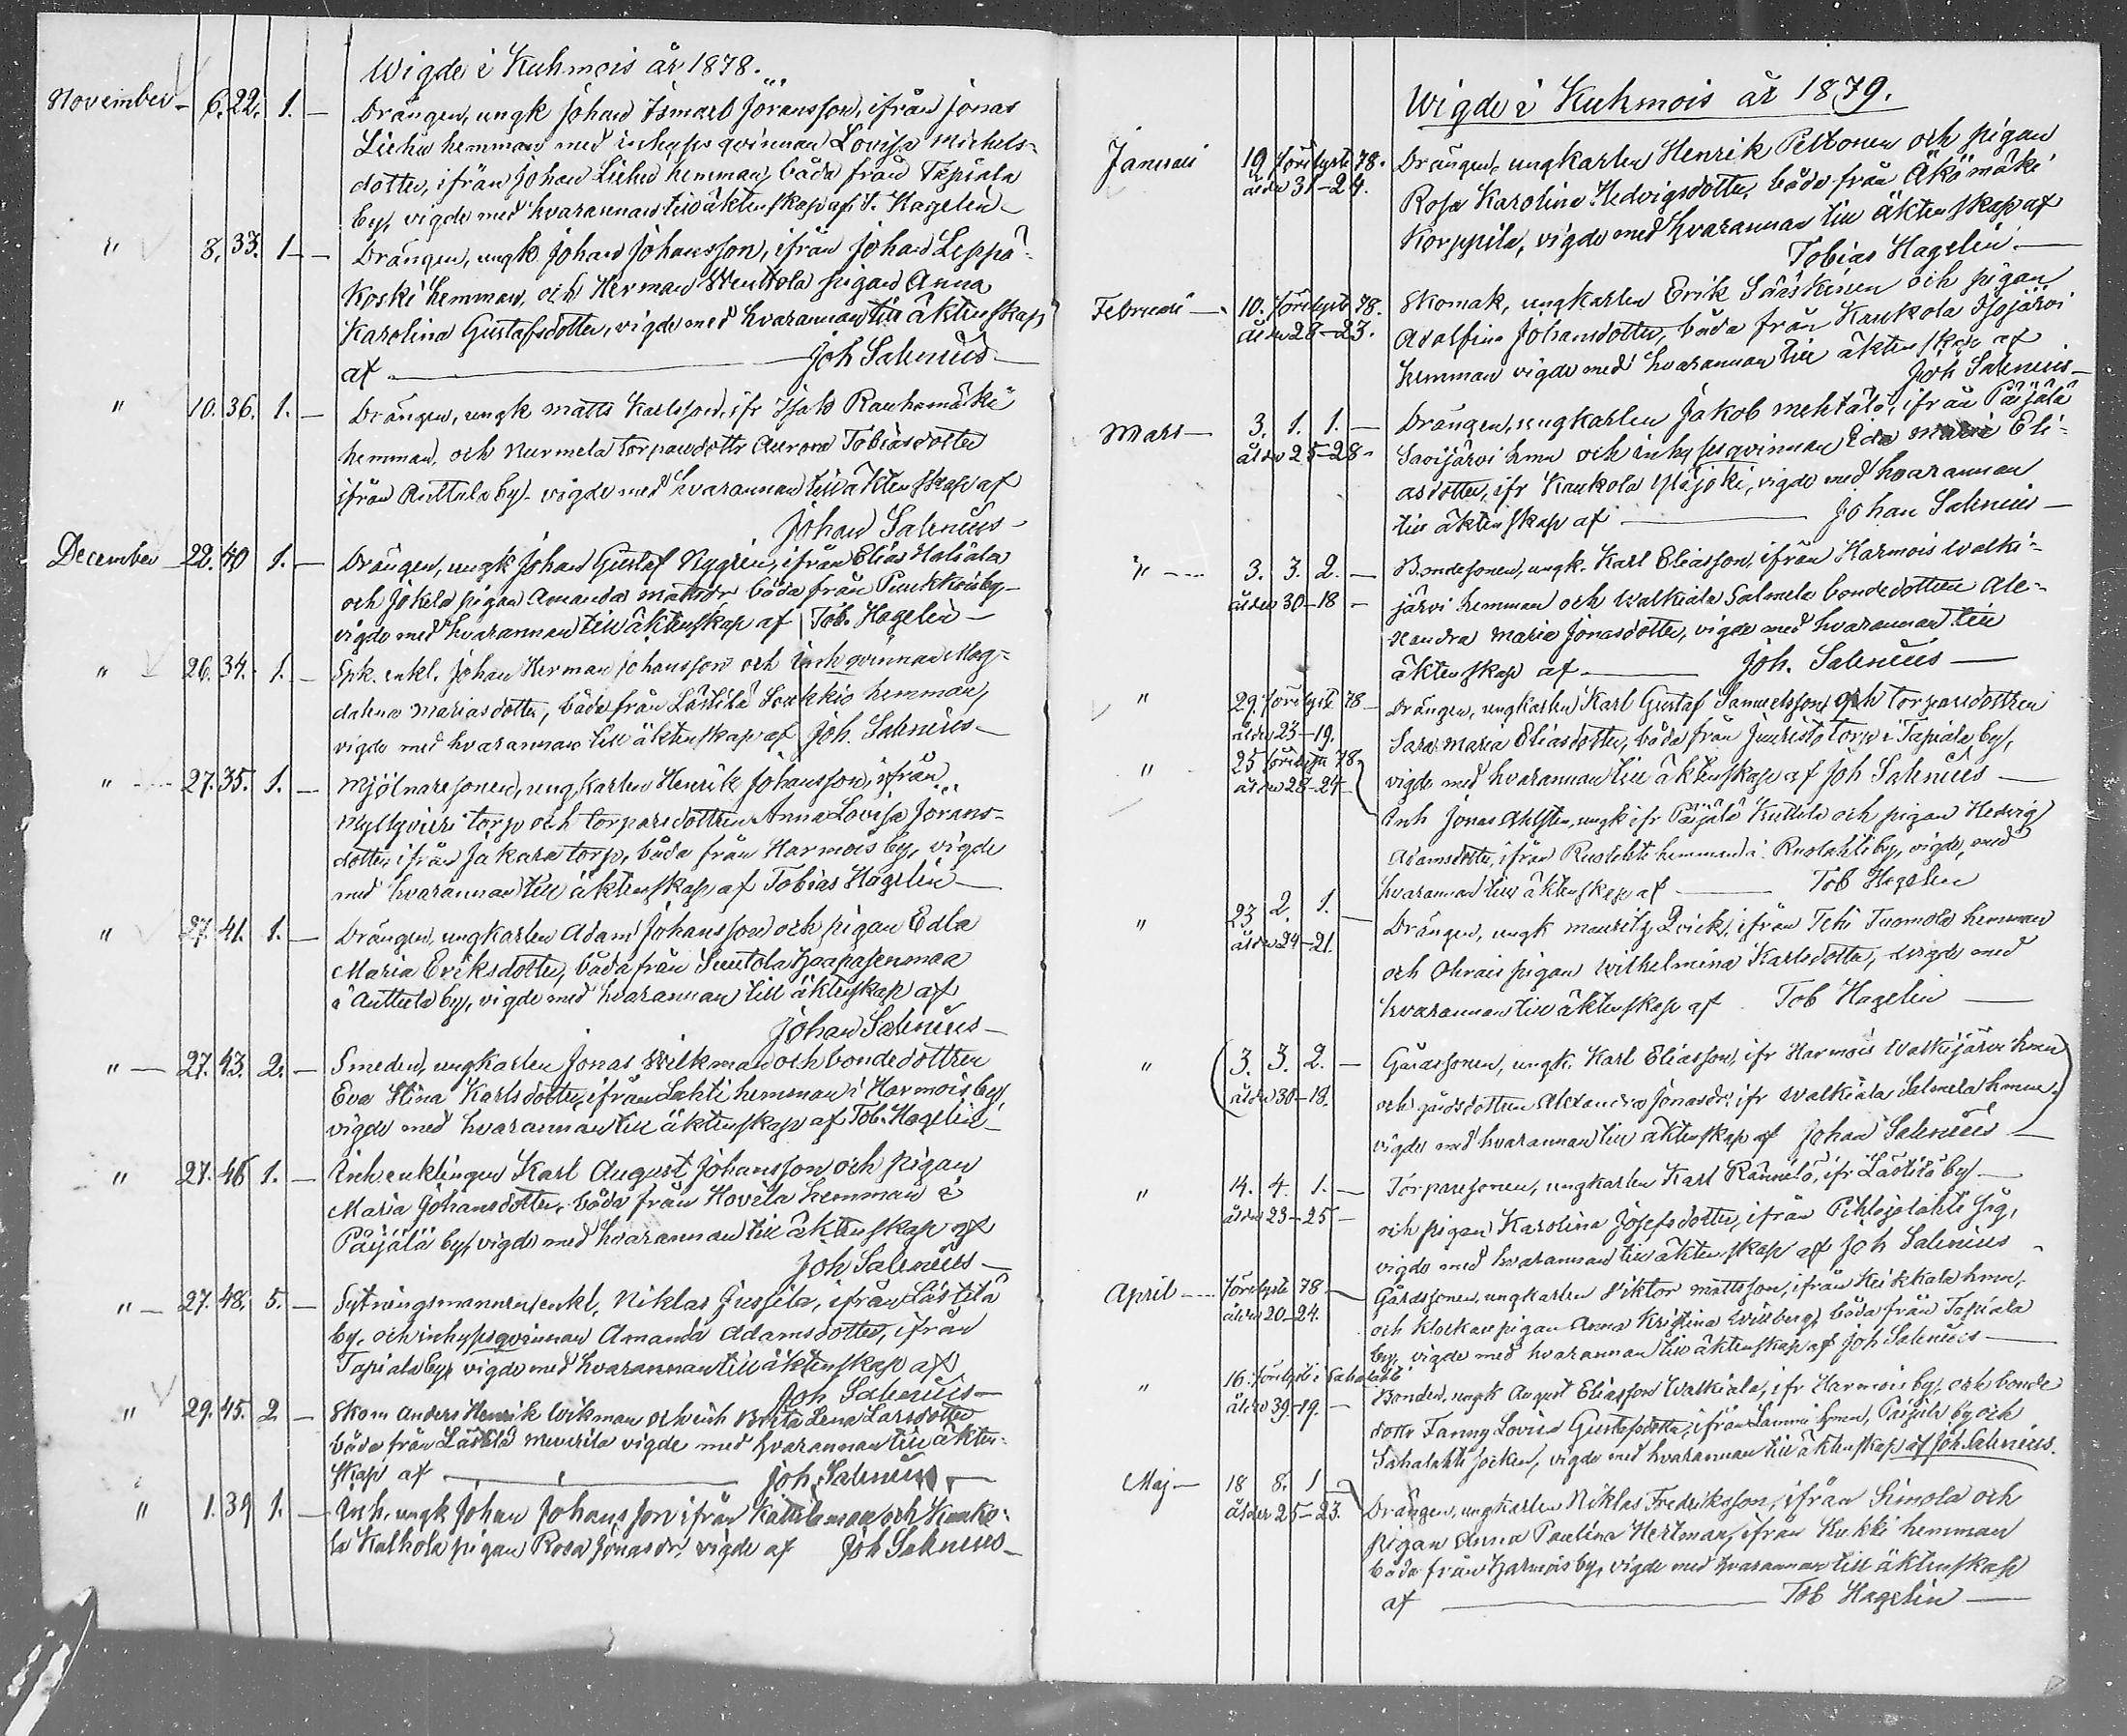 Wigde i Kuhmois år 1878.
November - 6. 22. 1. - Drängen, ungk Johan Ismael Jöransson, ifrån Jonas
Liehu hemman med inhyses qvinnan Lovisa Michels-
dotter, ifrån Johan Liehu hemman, båda från Tapiala
by, vigde med hvarannan till äktenskap af T. Hagelin -
" 8. 33. 1 - - Drängen, ungk Johan Johansson, ifrån Johan Leppä-
koski hemman, och Herman pigan Anna
Karolina Gustafsdotter, vigde med hvarannan till äktenskap
af - Joh Salenius -
" 10. 36. 1. - Drängen, ungk Matts Karlsson, ifr Isak Rauhamäki
hemman, och Nurmela torparedottr Aurora Tobiasdotter
ifrån Auttala by - vigde med hvarannan till äktenskap af
Johan Salenius -
December - 22. 40 1. - Drängen, ungk Johan Gustaf Nygrén, ifrån Elias
och Jokela pigan Amanda Mattsdr båda från Puukkois by -
vigde med hvarannan till äktenskap af Tob. Hagelin -
" 26. 34. 1. - Spk. enkl. Johan Herman Johansson och inh qvinnan Mag-
dalena Mariasdotter, båda från Lästilä Soukkio hemman,
vigde med hvarannan till äktenskap af Joh. Salenius -
" - 27. 35. 1. - Mjölnaresonen, ungkarlen Henrik Johansson, ifrån
torp och torparedottren Anna Lovisa Jörans-
dotter, ifrån Jakara torp, båda från Harmois by, vigde
med hvarannan till äktenskap af Tobias Hagelin -
" 27. 41. 1. - Drängen, ungkarlen Adam Johansson och pigan Edla
Maria Eriksdotter, båda från Suutola Haapasenmaa
i Auttula by, vigde med hvarannan till äktenskap af
Johan Salenius -
" - 27. 43. 2. - Smeden, ungkarlen Jonas Wilkman och bondedottren
Eva Stina Karlsdotter, ifrån Lahti hemman i Harmois by,
vigde med hvarannan till äktenskap af Tob. Hagelin -
" 27. 46 1. - Inh enklingen Karl August Johansson och pigan
Maria Johansdotter, båda från Hovila hemman i
Päijälä by, vigde med hvarannan till äktenskap af
Joh Salenius -
" - 27. 48. 5. - Sytningsmannen, enkl, Niklas Jussila, ifrån Lästilä
by, och inhysesqvinnan Amanda Adamsdotter, ifrån
Tapiala by, vigde med hvarannan till äktenskap af
Joh Salenius -
" 29. 45. 2 - Skom Anders Henrik Wikman och inh Brita Lena Larsdotter
båda från Lästilä vigde med hvarannan till äkten-
skap af - Joh. Salenius -
" 1. 39 1. - Inh. ungk Johan Johansson ifrån och Kauko-
la Kalhola pigan Rosa Jonasdr, vigde af Joh Salenius -
Wigde i Kuhmois år 1879.
Januari 19 förelyste 78. Drängen, ungkarlen Henrik Peltonen och pigan
ålder 31-24. Rosa Karolina Hedvigsdotter, båda från Äkömäki
Korppila, vigde med hvarannan till äktenskap af
Tobias Hagelin. -
Februari - 10. förelyste 78. Skomak, ungkarlen Erik Sääskinen och pigan
ålder 28-23. Adolfina Johansdotter, båda från Kaukola Isojärvi
hemman vigde med hvarannan till äktenskap af
Joh Salenius -
Mars - 3. 1. 1. - Drängen, ungkarlen Jakob Mehtälä, ifrån Päijälä
ålder 25-28 - Savijärvi hmn och inhysesqvinnan Ida Maria Eli-
asdotter, ifr Kaukola Yläjoki, vigde med hvarannan
till äktenskap af - Johan Salenius -
" - 3. 3. 2. - Bondesonen, ungk. Karl Eliasson, ifrån Harmois Walki-
ålder 30-18 - järvi hemman och Walkiala Salmela bondedottren Ale-
xandra Maria Jonasdotter, vigde med hvarannan till
äktenskap af - Joh. Salenius -
" 29. förelyste 78 - Drängen, ungkarlen Karl Gustaf Samuelsson och torparedottren
ålder 23-19. Sara Maria Eliasdotter, båda från torp i Tapiala by,
" 25 föreluste 78 vigde med hvarannan till äktenskap af Joh Salenius -
ålder 28-24 - Inh Jonas Ahlsten, ungk ifr Päijälä Kuttila och pigan Hedvig
Adamsdotter, ifrån hemman i by, vigde med
hvarannan till äktenskap af - Tob Hagelin
" 23 2. 1. - Drängen, ungk Mauritz Qvick, ifrån Tehi Tuomola hemman
ålder 24-21. och Ohrais pigan Wilhelmina Karlsdotter, vigde med
hvarannan till äktenskap af Tob Hagelin -
" (3. 3. 2. - Gårdssonen, ungk. Karl Eliasson, ifr Harmois Walkijärvi hmn)
(ålder 30-18. och gårdsdottren Alexandra Jonasdr. ifr Walkiala Salmela hmn.)
vigde med hvarannan till äktenskap af Johan Salenius -
" 14. 4. 1. - Torparesonen, ungkarlen Karl Rännilä, ifr Lästilä by -
ålder 23-25 - och pigan Karolina Josefsdotter, ifrån Pihlajalahti by,
vigde med hvarannan till äktenskap af Joh Salenius -
April - föreluste 78 - Gårdssonen, ungkarlen Viktor Mattsson, ifrån Keikkala hmn,
ålder 20-24. och klockarepigan Anna Kristina Willberg, båda från Tapiala
by, vigde med hvarannan till äktenskap af Joh Salenius -
" 16. föreluste i Sahalahti Bonden, ungk August Eliasson Walkiala, ifr Harmois by, och bonde
ålder 39-19. - dottr Fanny Lovisa Gustafsdotter, ifrån Lammi hmn, by och
Sahalahti socken, vigde med hvarannan till äktenskap af Joh Salenius.
Maj - 18 8. 1 - Drängen, ungkarlen Niklas Fredriksson, ifrån Simola och
ålder 25-23. pigan Anna Paulina Hertman, ifrån Kukki hemman
båda från Harmois by, vigde med hvarannan till äktenskap
af - Tob Hagelin -